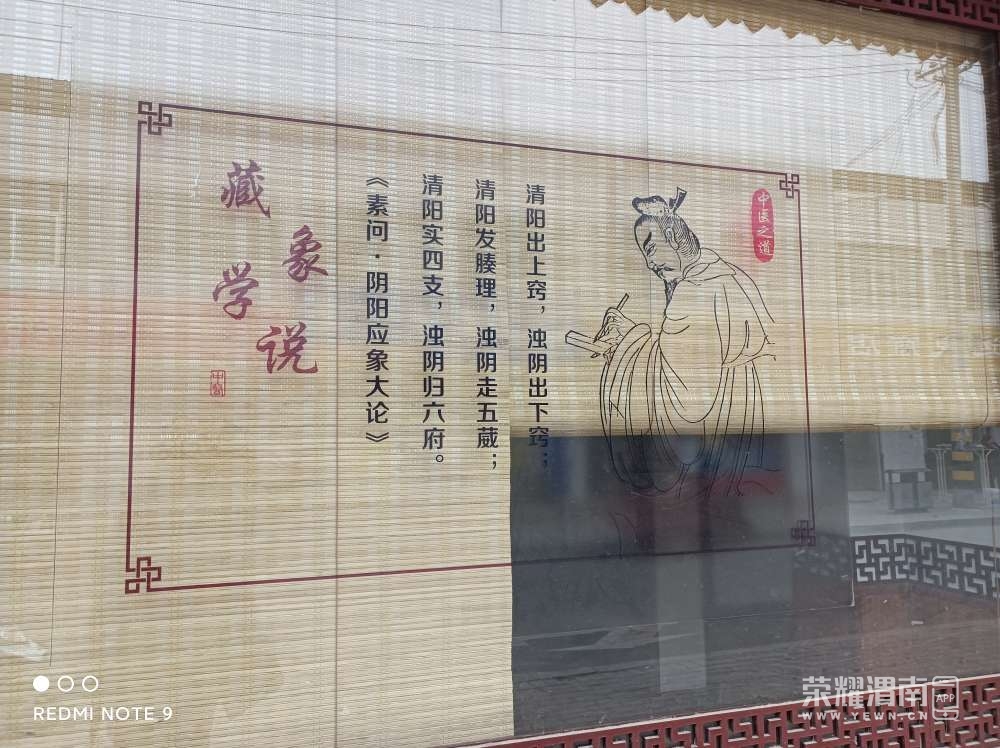 中医之道
清阳出上窍，浊阴出下窍；
清阳发腠理，浊阴走五蔵；
清阳实四支，浊阴归六府。
《素问·阴阳应象大论》
藏象学说
REDMI NOTE 9
荣耀渭南 APP
WWW.YEWN.CN